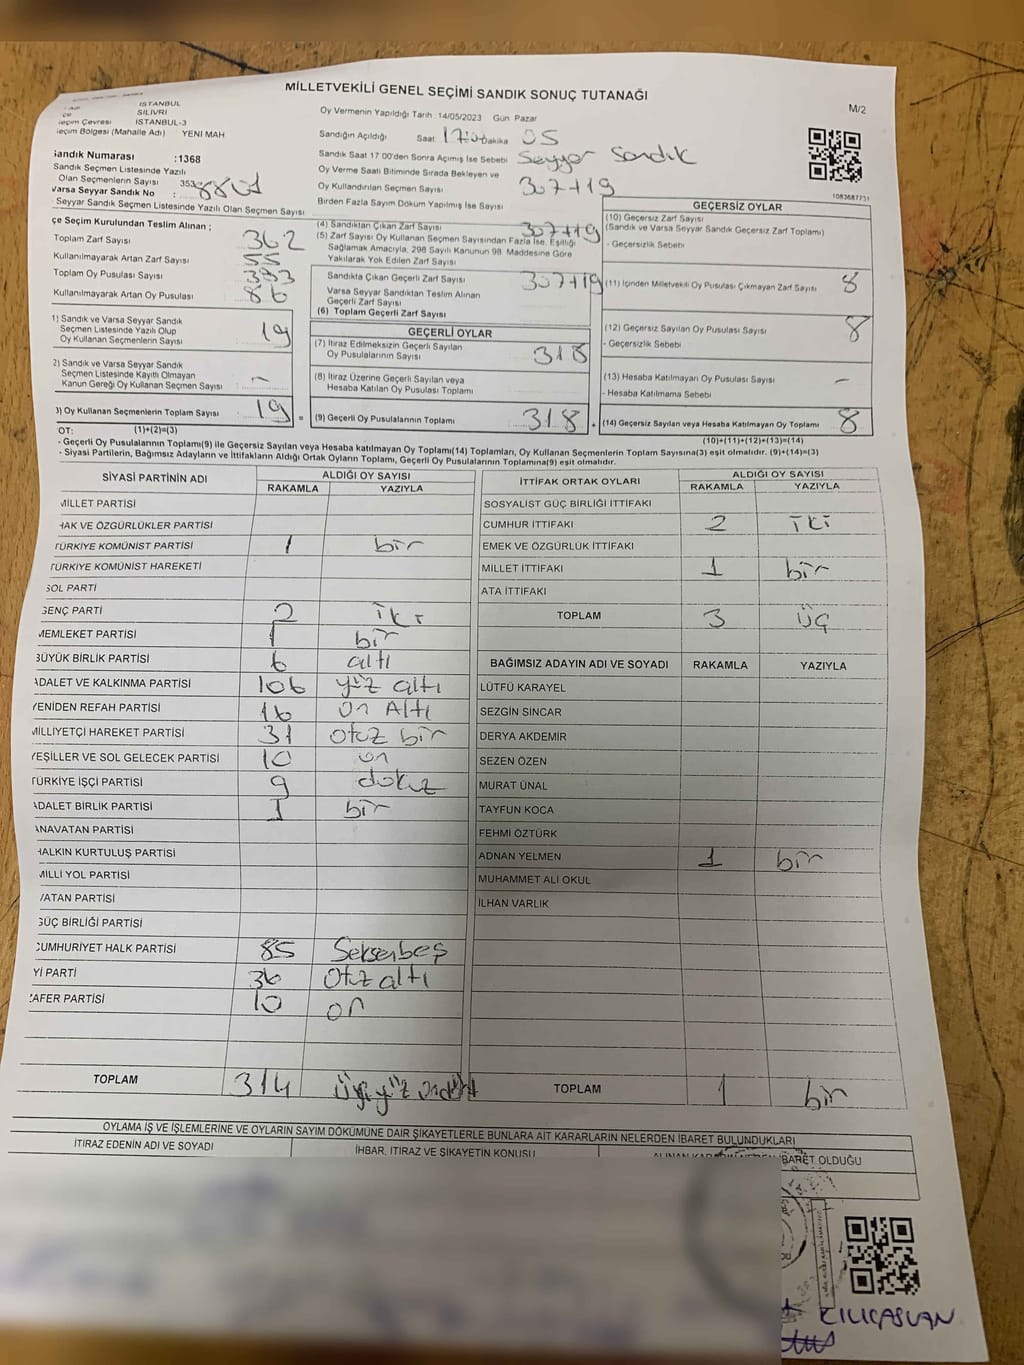 MİLLETVEKİLİ GENEL SEÇİMİ SANDIK SONUÇ TUTANAĞI
M/2
İSTANBUL
SİLİVRİ
Seçim Çevresi İSTANBUL-3
Seçim Bölgesi (Mahalle Adı) YENİ MAH
Sandık Numarası :1368
Sandık Seçmen Listesinde Yazılı
Olan Seçmenlerin Sayısı 353
Varsa Seyyar Sandık No :
Seyyar Sandık Seçmen Listesinde Yazılı Olan Seçmen Sayısı
Oy Vermenin Yapıldığı Tarih :14/05/2023 Gün Pazar
Sandığın Açıldığı Saat Dakika 05
Sandık Saat 17 00'den Sonra Açımış İse Sebebi Seyyar Sandık
Oy Verme Saati Bitiminde Sırada Bekleyen ve
Oy Kullandırılan Seçmen Sayısı 307+19
Birden Fazla Sayım Döküm Yapılmış İse Sayısı
1083687751
İlçe Seçim Kurulundan Teslim Alınan ;
Toplam Zarf Sayısı 362
Kullanılmayarak Artan Zarf Sayısı 55
Toplam Oy Pusulası Sayısı 393
Kullanılmayarak Artan Oy Pusulası 86
1) Sandık ve Varsa Seyyar Sandık
Seçmen Listesinde Yazılı Olup
Oy Kullanan Seçmenlerin Sayısı 19
2) Sandık ve Varsa Seyyar Sandık
Seçmen Listesinde Kayıtlı Olmayan
Kanun Gereği Oy Kullanan Seçmen Sayısı : -
3) Oy Kullanan Seçmenlerin Toplam Sayısı 19 =
(4) Sandıktan Çıkan Zarf Sayısı 307+19
(5) Zarf Sayısı Oy Kullanan Seçmen Sayısından Fazla İse, Eşitliği
Sağlamak Amacıyla, 298 Sayılı Kanunun 98. Maddesine Göre
Yakılarak Yok Edilen Zarf Sayısı
Sandıkta Çıkan Geçerli Zarf Sayısı 307+19
Varsa Seyyar Sandıktan Teslim Alınan
Geçerli Zarf Sayısı
(6) Toplam Geçerli Zarf Sayısı
GEÇERLİ OYLAR
(7) İtiraz Edilmeksizin Geçerli Sayılan
Oy Pusulalarının Sayısı 318
(8) İtiraz Üzerine Geçerli Sayılan veya
Hesaba Katılan Oy Pusulası Toplamı
(9) Geçerli Oy Pusulalarının Toplamı 318 +
GEÇERSİZ OYLAR
(10) Geçersiz Zarf Sayısı
(Sandık ve Varsa Seyyar Sandık Geçersiz Zarf Toplamı)
- Geçersizlik Sebebi
(11) İçinden Milletvekili Oy Pusulası Çıkmayan Zarf Sayısı 8
(12) Geçersiz Sayılan Oy Pusulası Sayısı 8
- Geçersizlik Sebebi
(13) Hesaba Katılmayan Oy Pusulası Sayısı -
- Hesaba Katılmama Sebebi
(14) Geçersiz Sayılan veya Hesaba Katılmayan Oy Toplamı 8
NOT: (1)+(2)=(3)
(10)+(11)+(12)+(13)=(14)
- Geçerli Oy Pusulalarının Toplamı(9) ile Geçersiz Sayılan veya Hesaba katılmayan Oy Toplamı(14) Toplamları, Oy Kullanan Seçmenlerin Toplam Sayısına(3) eşit olmalıdır. (9)+(14)=(3)
- Siyasi Partilerin, Bağımsız Adayların ve İttifakların Aldığı Ortak Oyların Toplamı, Geçerli Oy Pusulalarının Toplamına(9) eşit olmalıdır.
SİYASİ PARTİNİN ADI ALDIĞI OY SAYISI
RAKAMLA YAZIYLA
MİLLET PARTİSİ
HAK VE ÖZGÜRLÜKLER PARTİSİ
TÜRKİYE KOMÜNİST PARTİSİ 1 bir
TÜRKİYE KOMÜNİST HAREKETİ
SOL PARTİ
GENÇ PARTİ 2 iki
MEMLEKET PARTİSİ 1 bir
BÜYÜK BİRLİK PARTİSİ 6 altı
ADALET VE KALKINMA PARTİSİ 106 yüz altı
YENİDEN REFAH PARTİSİ 16 on Altı
MİLLİYETÇİ HAREKET PARTİSİ 31 otuz bir
YEŞİLLER VE SOL GELECEK PARTİSİ 10 on
TÜRKİYE İŞÇİ PARTİSİ 9 dokuz
ADALET BİRLİK PARTİSİ 1 bir
ANAVATAN PARTİSİ
HALKIN KURTULUŞ PARTİSİ
MİLLİ YOL PARTİSİ
VATAN PARTİSİ
GÜÇ BİRLİĞİ PARTİSİ
CUMHURİYET HALK PARTİSİ 85 Seksenbeş
İYİ PARTİ 36 Otuz altı
ZAFER PARTİSİ 10 on
TOPLAM 314 üçyüz ondört
İTTİFAK ORTAK OYLARI ALDIĞI OY SAYISI
RAKAMLA YAZIYLA
SOSYALİST GÜÇ BİRLİĞİ İTTİFAKI
CUMHUR İTTİFAKI 2 iki
EMEK VE ÖZGÜRLÜK İTTİFAKI
MİLLET İTTİFAKI 1 bir
ATA İTTİFAKI
TOPLAM 3 üç
BAĞIMSIZ ADAYIN ADI VE SOYADI RAKAMLA YAZIYLA
LÜTFÜ KARAYEL
SEZGİN SİNCAR
DERYA AKDEMİR
SEZEN ÖZEN
MURAT ÜNAL
TAYFUN KOCA
FEHMİ ÖZTÜRK
ADNAN YELMEN 1 bir
MUHAMMET ALİ OKUL
İLHAN VARLIK
TOPLAM 1 bir
OYLAMA İŞ VE İŞLEMLERİNE VE OYLARIN SAYIM DÖKÜMÜNE DAİR ŞİKAYETLERLE BUNLARA AİT KARARLARIN NELERDEN İBARET BULUNDUKLARI
İTİRAZ EDENİN ADI VE SOYADI İHBAR, İTİRAZ VE ŞİKAYETİN KONUSU İBARET OLDUĞU
KILIÇASLAN